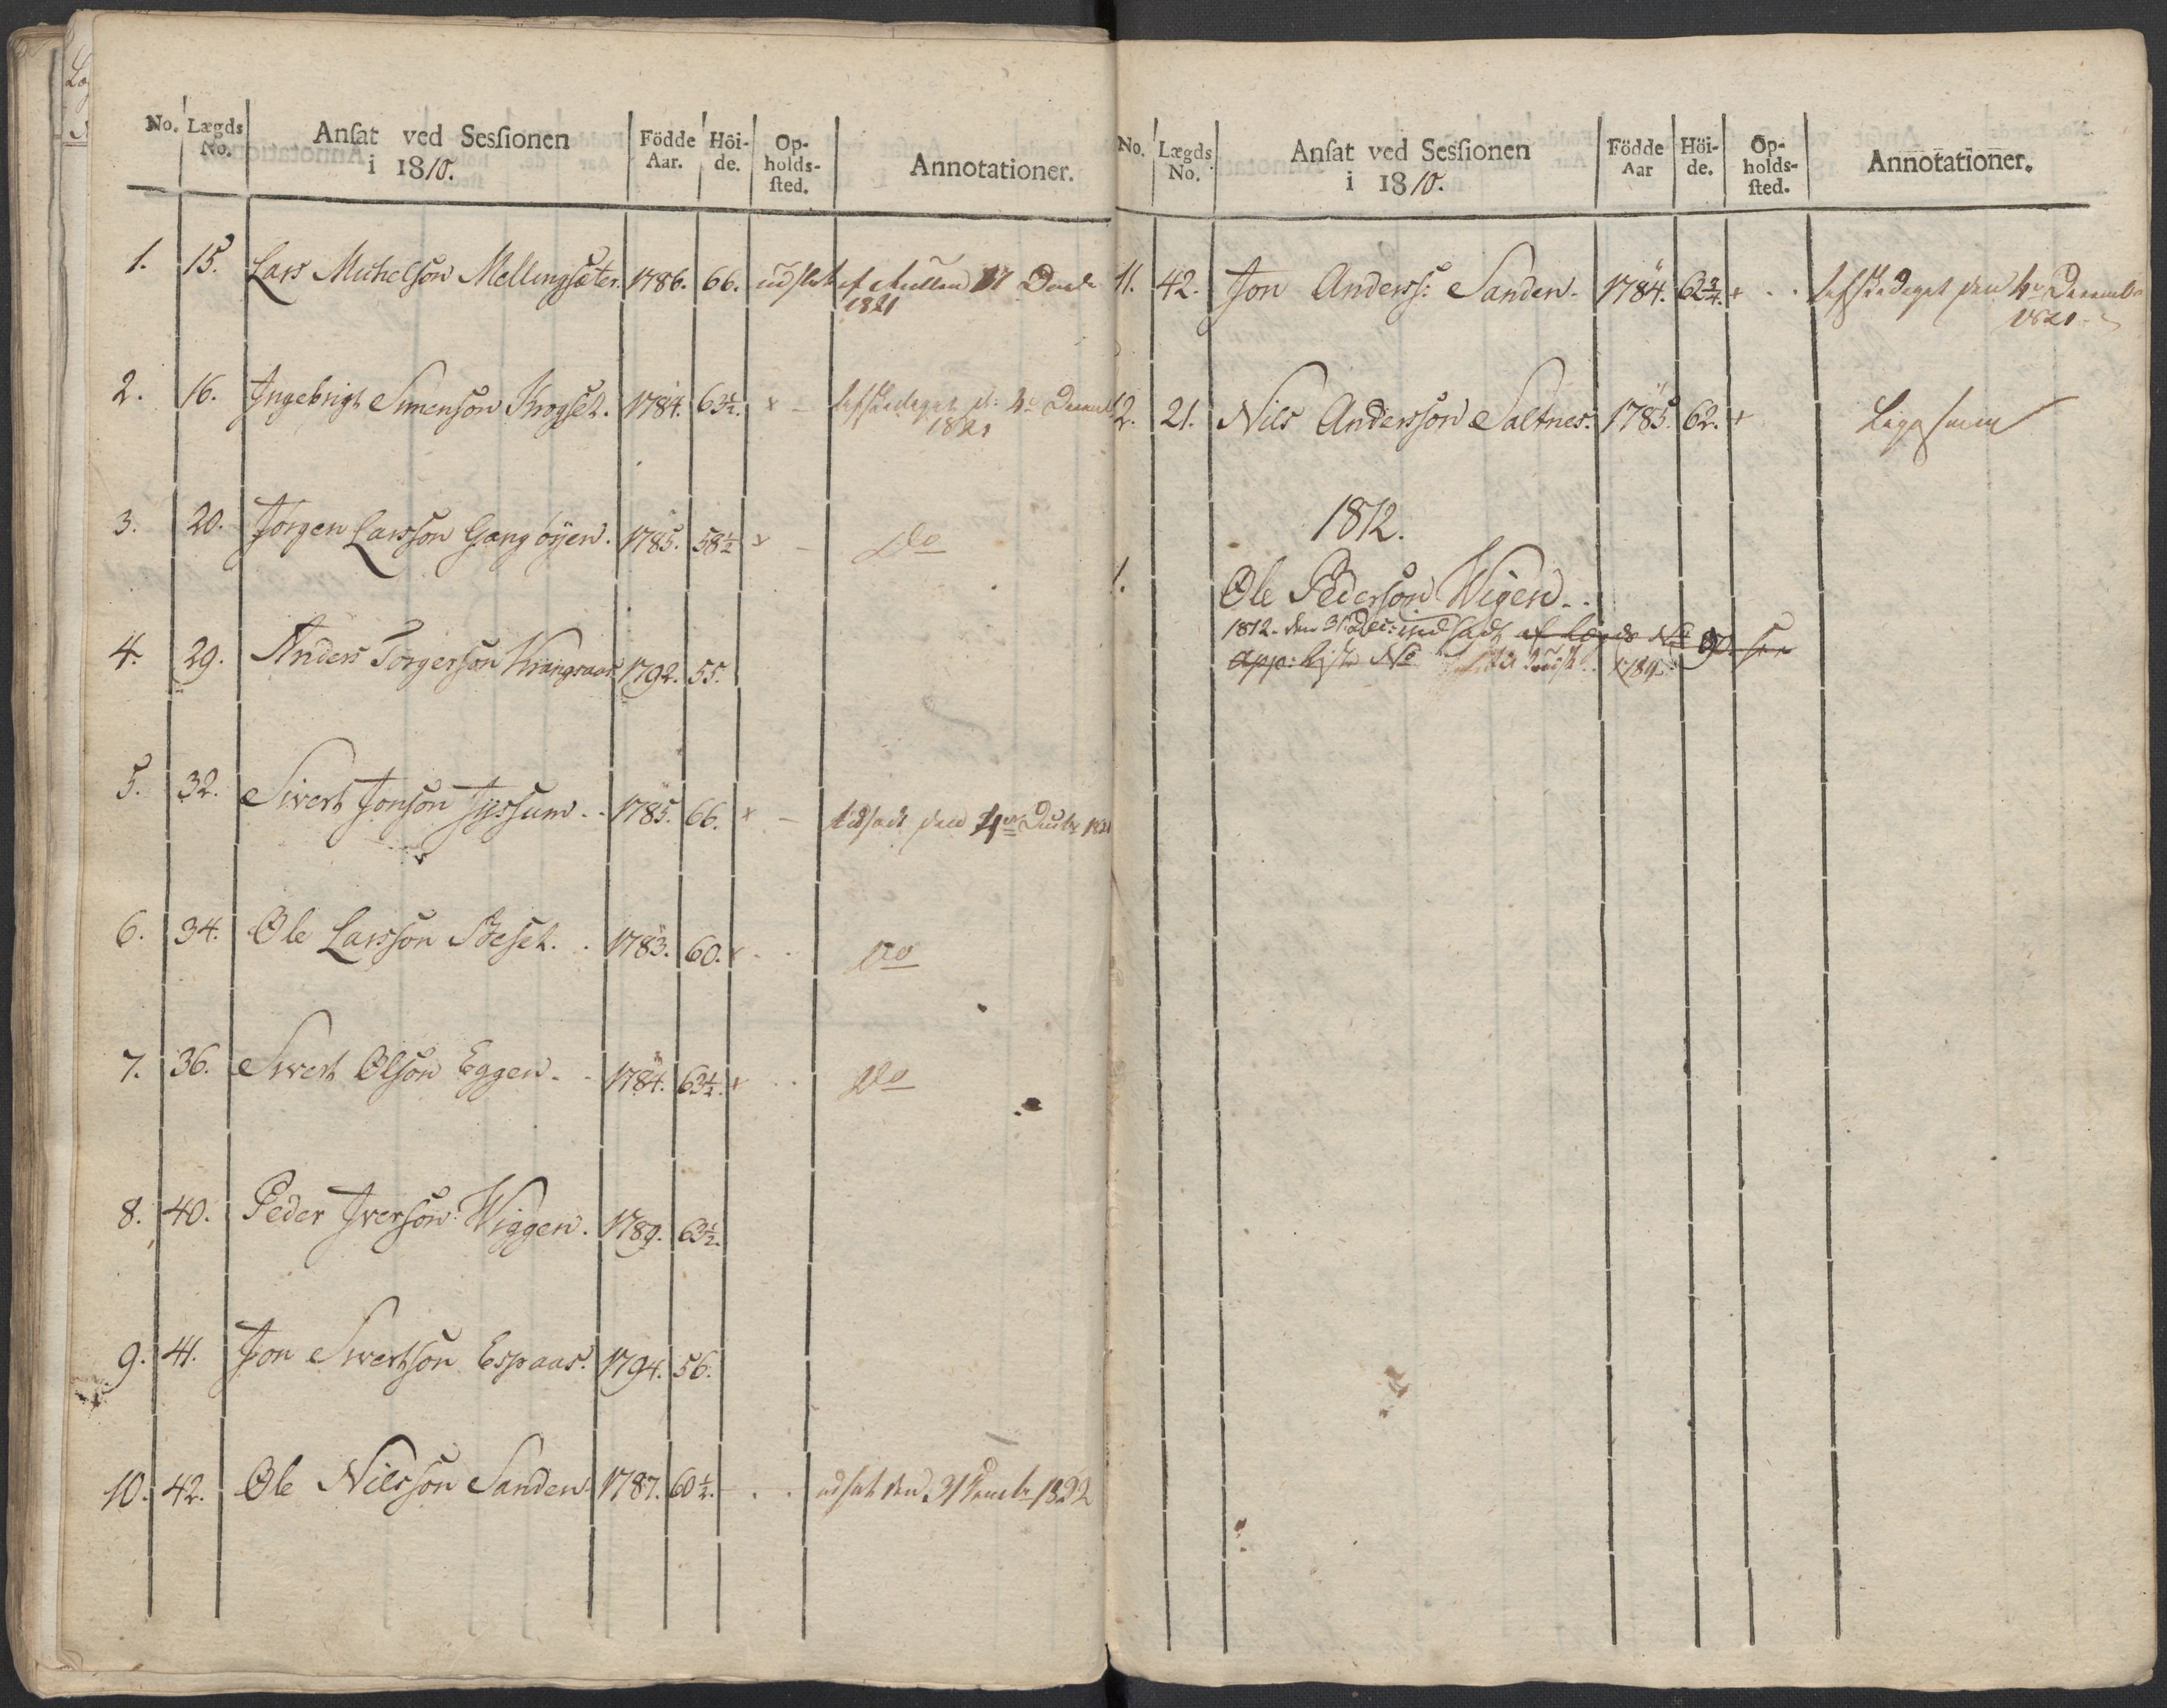 No. Lægds No. Ansat ved Sessionen i 1810. Födde Aar. Höi-de. Op-holds-sted. Annotationer.
1. 15. Lars Michelson Mellingsæter. 1786. 66. udslet af Rullen 17
1821
2. 16. Ingebrigt Simenson Krogset. 1784. 63½. x – afskediget d: 4de Decemb
1821
3. 20. Jörgen Larsson Gangöyen. 1785. 58½ x – Do
4. 29. Anders Torgerson Krangsaas 1792. 55.
5. 32. Sivert Jonson Jyssum. 1785. 66. x – udsadt den 4de Decbr 1821
6. 34. Ole Larsson Beset. 1783. 60. x Do
7. 36. Sivert Olson Eggen. 1784. 63½. x Do
8. 40. Peder Iverson Wiggen. 1789. 63½.
9. 41. Jon Sivertson Espaas. 1794. 56.
10. 42. Ole Nilsson Sanden 1787. 60½. udsat den 31 1822
No. Lægds No. Ansat ved Sessionen i 1810. Födde Aar Höi-de. Op-holds-sted. Annotationer.
11. 42. Jon Anderss: Sanden. 1784. 62¾. x afskediget den 4de Decembr
1821
2. 21. Nils Andersson Saltnes. 1785. 62. x
1812.
1. Ole Pederson Wigen.
1812. den 31 Dec: af Lægds No 90
App: Liste No 1789